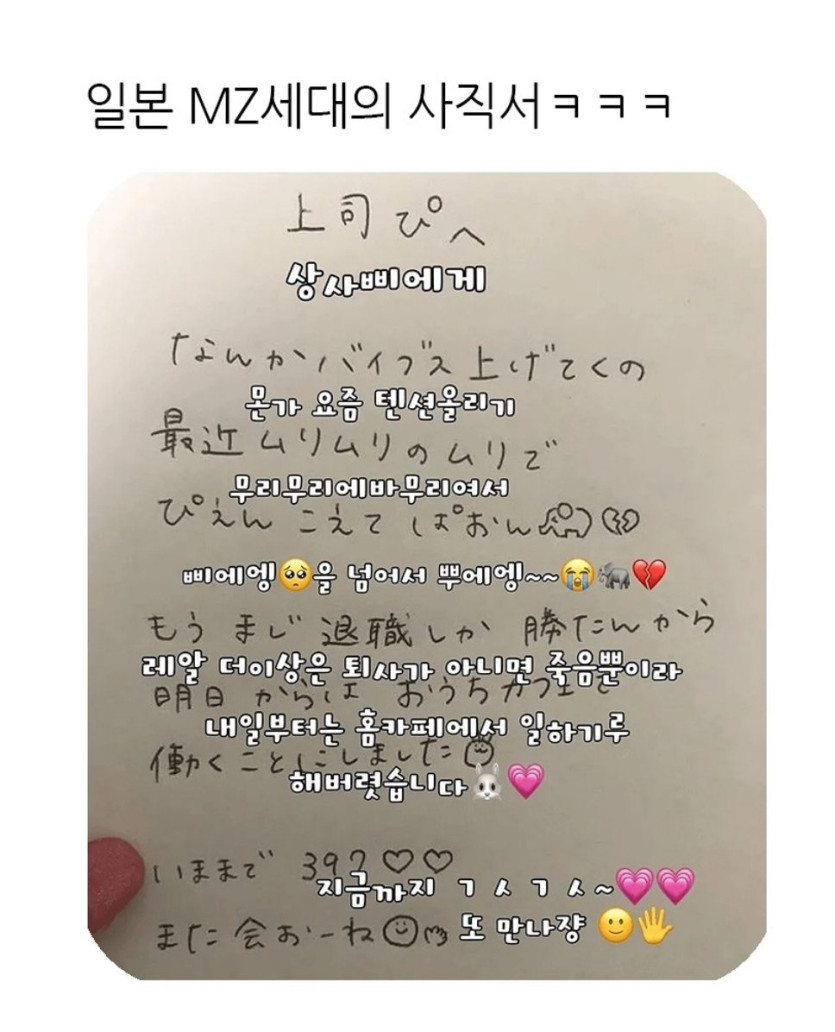 일본 MZ세대의 사직서ㅋㅋㅋ
上司ぴへ
상사삐에게
なんかバイブス上げてくの
몬가 요즘 텐션올리기
最近ムリムリのムリで
무리무리에바무리여서
ぴえんこえてぱおん
삐에엥🥺을 넘어서 뿌에엥~~😭🐘💔
もうまじ退職しか勝たんから
레알 더이상은 퇴사가 아니면 죽음뿐이라
明日からは おうちカフェを
내일부터는 홈카페에서 일하기루
働くことにしました
해버렷습니다🐰💗
いままで 392♡♡
지금까지 ㄱㅅㄱㅅ~💗💗
また会おーね 또 만나쟝 🙂🖐